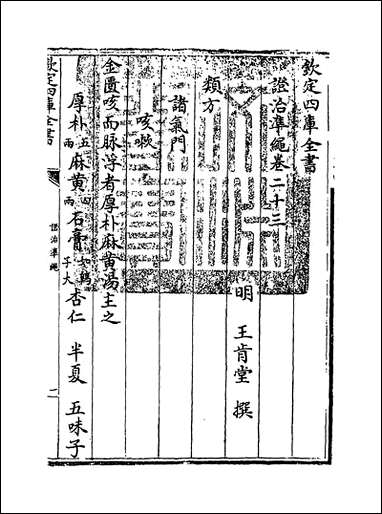 欽定四庫全書
證治準繩卷二十三
明 王肯堂 撰
類方
諸氣門
咳嗽
金匱咳而脉浮者厚朴麻黄湯主之
厚朴五兩 麻黄四兩 石膏如鷄子大 杏仁 半夏 五味子
欽定四庫全書
證治準繩